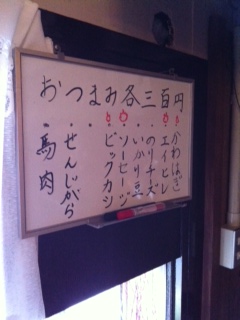 おつまみ各三百円
・かわはぎ
・エイヒレ
・のりチーズ
・いかり豆
・ソーセージ
・ビックカツ
・せんじがら
・馬肉